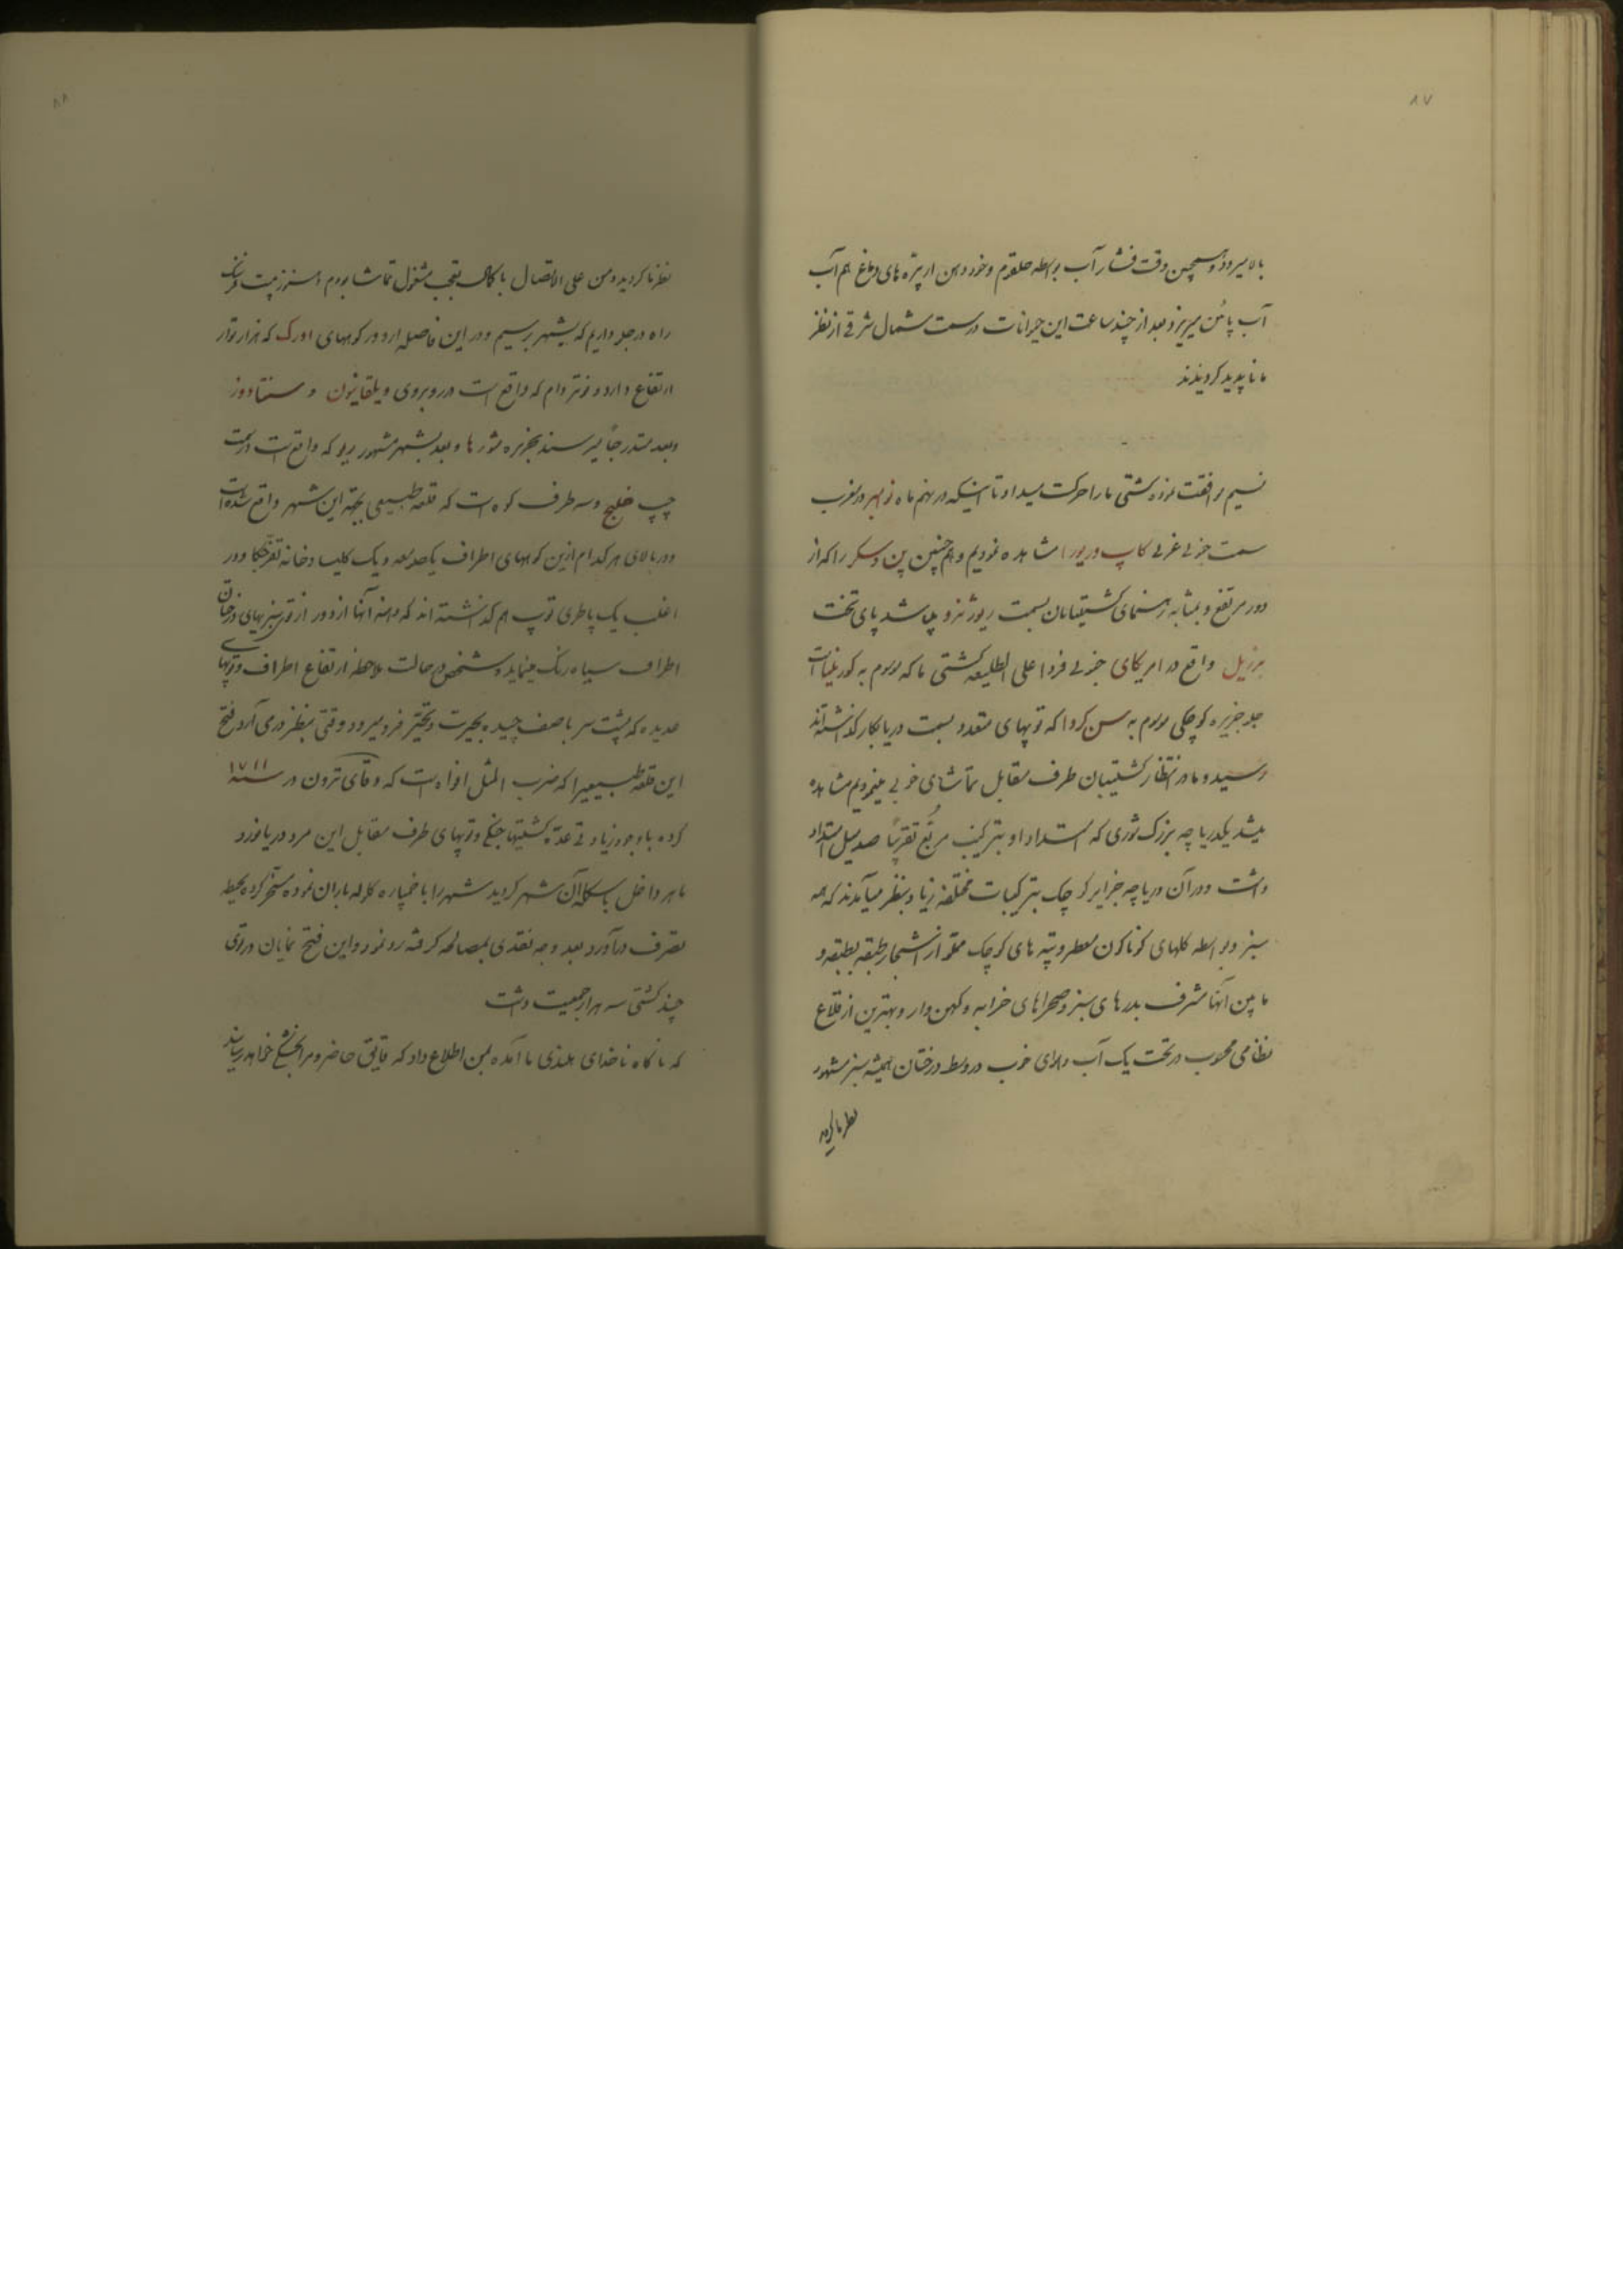 ۸۷
بالا میرود و همچنین وقت فشار آب بواسطه حلقوم و خود دهن از پرّه های دماغ هم آب
آب پائین میریزد بعد از چند ساعت این حیوانات در سمت شمال شرقی از نظر
ما ناپدید کردیدند
نسیم موافقت نموده کشتی ما را حرکت میداد تا اینکه در نهم ماه نومبر در مغرب
سمت جنوبی غربی کاپ وریورا مشاهده نمودیم و هم چنین پن دسکر را که از
دور مرتفع و بمثابه رهنمای کشتیبانان بسمت ریوژنرو میباشد پای تخت
برزیل واقع در امریکای جنوبی فردا علی الطلیعه کشتی ما که موسوم به کورنلیا است
جلو جزیره کوچکی موسوم به سن کروا که توپهای متعدد بسمت دریا بکار کذاشته‌اند
رسید و ما در انتظار کشتیبان طرف مقابل تماشای خوبی مینمودیم مشاهده
میشد یکدریاچه بزرک شوری که امتداد او بترکیب مربّع تقریباً صد میل امتداد
داشت و در آن دریاچه جزایر کوچک بترکیبات مختلفه زیاد بنظر میآمدند که همه
سبز و بواسطه کلهای کوناکون معطر و تپه های کوچک مملو از اشجار طبقه بطبقه و
مابین آنها مشرف بدره‌های سبز و صحراهای خرابه و کهن وار و بهترین از قلاع
نظامی محسوب در تحت یک آب و هوای خوب در وسط درختان همیشه سبز مشهور
نظر ما کردید
۸۸
نظر ما کردید و من علی الاتصال با کمال تعجب مشغول تماشا بودم هنوز بیست فرسنک
راه در جلو داریم که بشهر برسیم و در این فاصله از دور کوههای اورک که هزار توار
ارتفاع دارد و نتردام که واقع است در روبروی ویلقانیون و سنتادوز
و بعد متدرجاً میرسند بجزیره مورها و بعد بشهر مشهور ریو که واقع است در سمت
چپ خلیج و سه طرف کوه است که قلعه طبیعی بجهة این شهر واقع شده است
و در بالای هر کدام ازین کوههای اطراف یک صومعه و یک کلیسا و خانه تفرّجکا و در
اغلب یک باطری توپ هم کذاشته اند که دهنه آنها از دور از فوق سبزیهای درختان
اطراف سیاه رنک مینماید و شخص در حالت ملاحظه ارتفاع اطراف و توپهای
عدیده که پشت سر با صف چیده بحیرت و تحیّر فرو میرود وقتی بنظر در می آرد فتح
این قلعه طبیعی را که ضرب المثل افواه است که دقای ترون در سنه ۱۷۱۱
کرده با وجود زیادتی عدّه کشتیها جنکی و توپهای طرف مقابل این مرد دریانورد
ماهر داخل باسکله آن شهر کردید شهر را با خمپاره کلوله باران نموده مسخر کرده بحیطه
تصرف درآورد بعد وجه نقدی بمصالحه کرفته رد نمود و این فتح نمایان در توی
چند کشتی سه هزار جمعیت داشت
که ناکاه ناخدای هلندی ما آمده بمن اطلاع داد که قایقی حاضر و مرا بخشکی خواهد رسانید